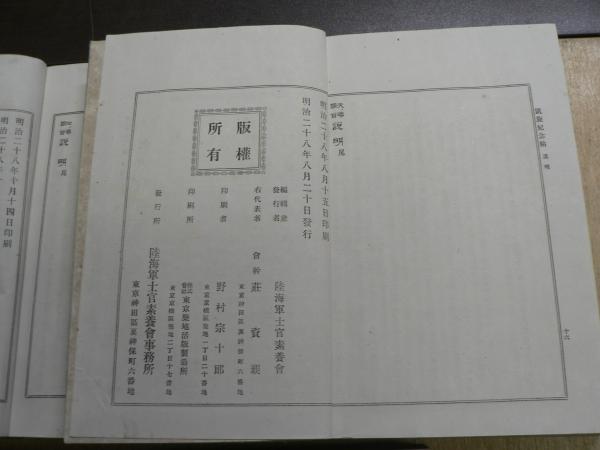 凱旋紀念帖 説明
説明 尾
十六
明治二十八年八月十五日印刷
明治二十八年八月二十日發行
版權
所有
編輯兼
發行者
陸海軍士官素養會
右代表者
會幹
莊
東京神田區裏神保町六番地
印刷者
野村宗十郎
東京京橋區築地一丁目二十番地
印刷所
株式會社
東京築地活版製造所
東京京橋區築地二丁目十七番地
發行所
陸海軍士官素養會事務所
東京神田區裏神保町六番地
説明 尾
明治二十八年十月十四日印刷
明治二十八年